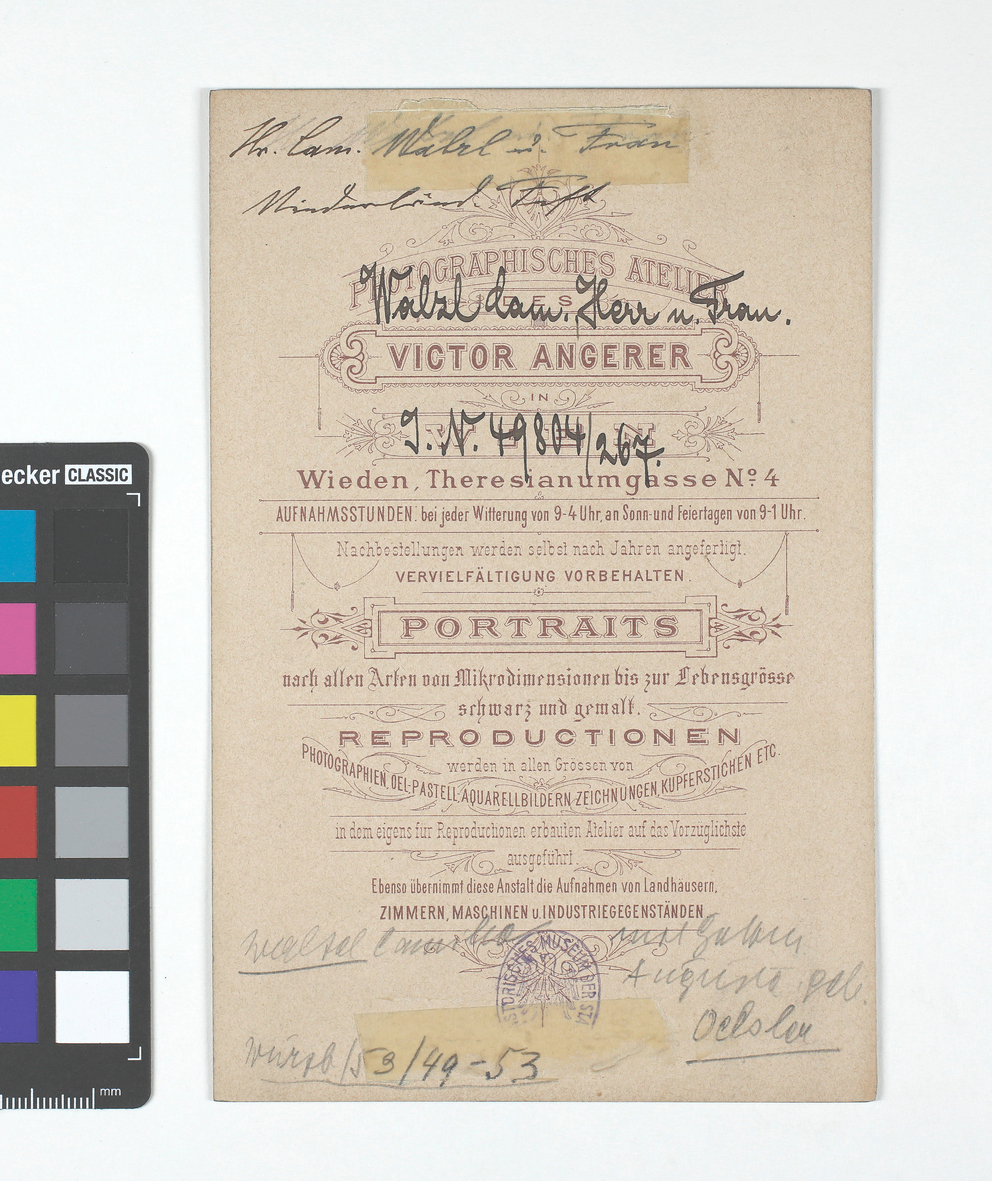 Hr. Cam. Walzl u. Frau
Niederländ. Fest
PHOTOGRAPHISCHES ATELIER
DES
Walzl Cam. Herr u. Frau.
VICTOR ANGERER
IN
WIEN
I. N. 49804/267.
Wieden, Theresianumgasse No. 4
AUFNAHMSSTUNDEN. bei jeder Witterung von 9-4 Uhr, an Sonn-und Feiertagen von 9-1 Uhr.
Nachbestellungen werden selbst nach Jahren angefertigt.
VERVIELFÄLTIGUNG VORBEHALTEN.
PORTRAITS
nach allen Arten von Mikrodimensionen bis zur Lebensgrösse
schwarz und gemalt.
REPRODUCTIONEN
werden in allen Grössen von
PHOTOGRAPHIEN, OEL-PASTELL, AQUARELLBILDERN, ZEICHNUNGEN, KUPFERSTICHEN ETC.
in dem eigens für Reproductionen erbauten Atelier auf das Vorzüglichste
ausgeführt.
Ebenso übernimmt diese Anstalt die Aufnahmen von Landhäusern,
ZIMMERN, MASCHINEN u. INDUSTRIEGEGENSTÄNDEN
Camillo
Auguste geb.
STORISCHES MUSEUM DER STA
Oelsler
Wurzb/53/49-53
ecker CLASSIC
mm